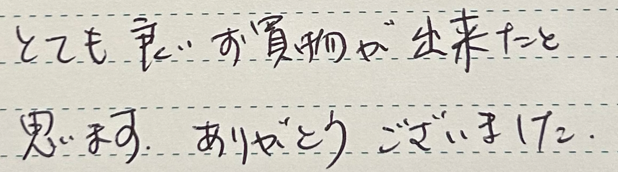 とても良いお買物が出来たと
思います. ありがとうございました.